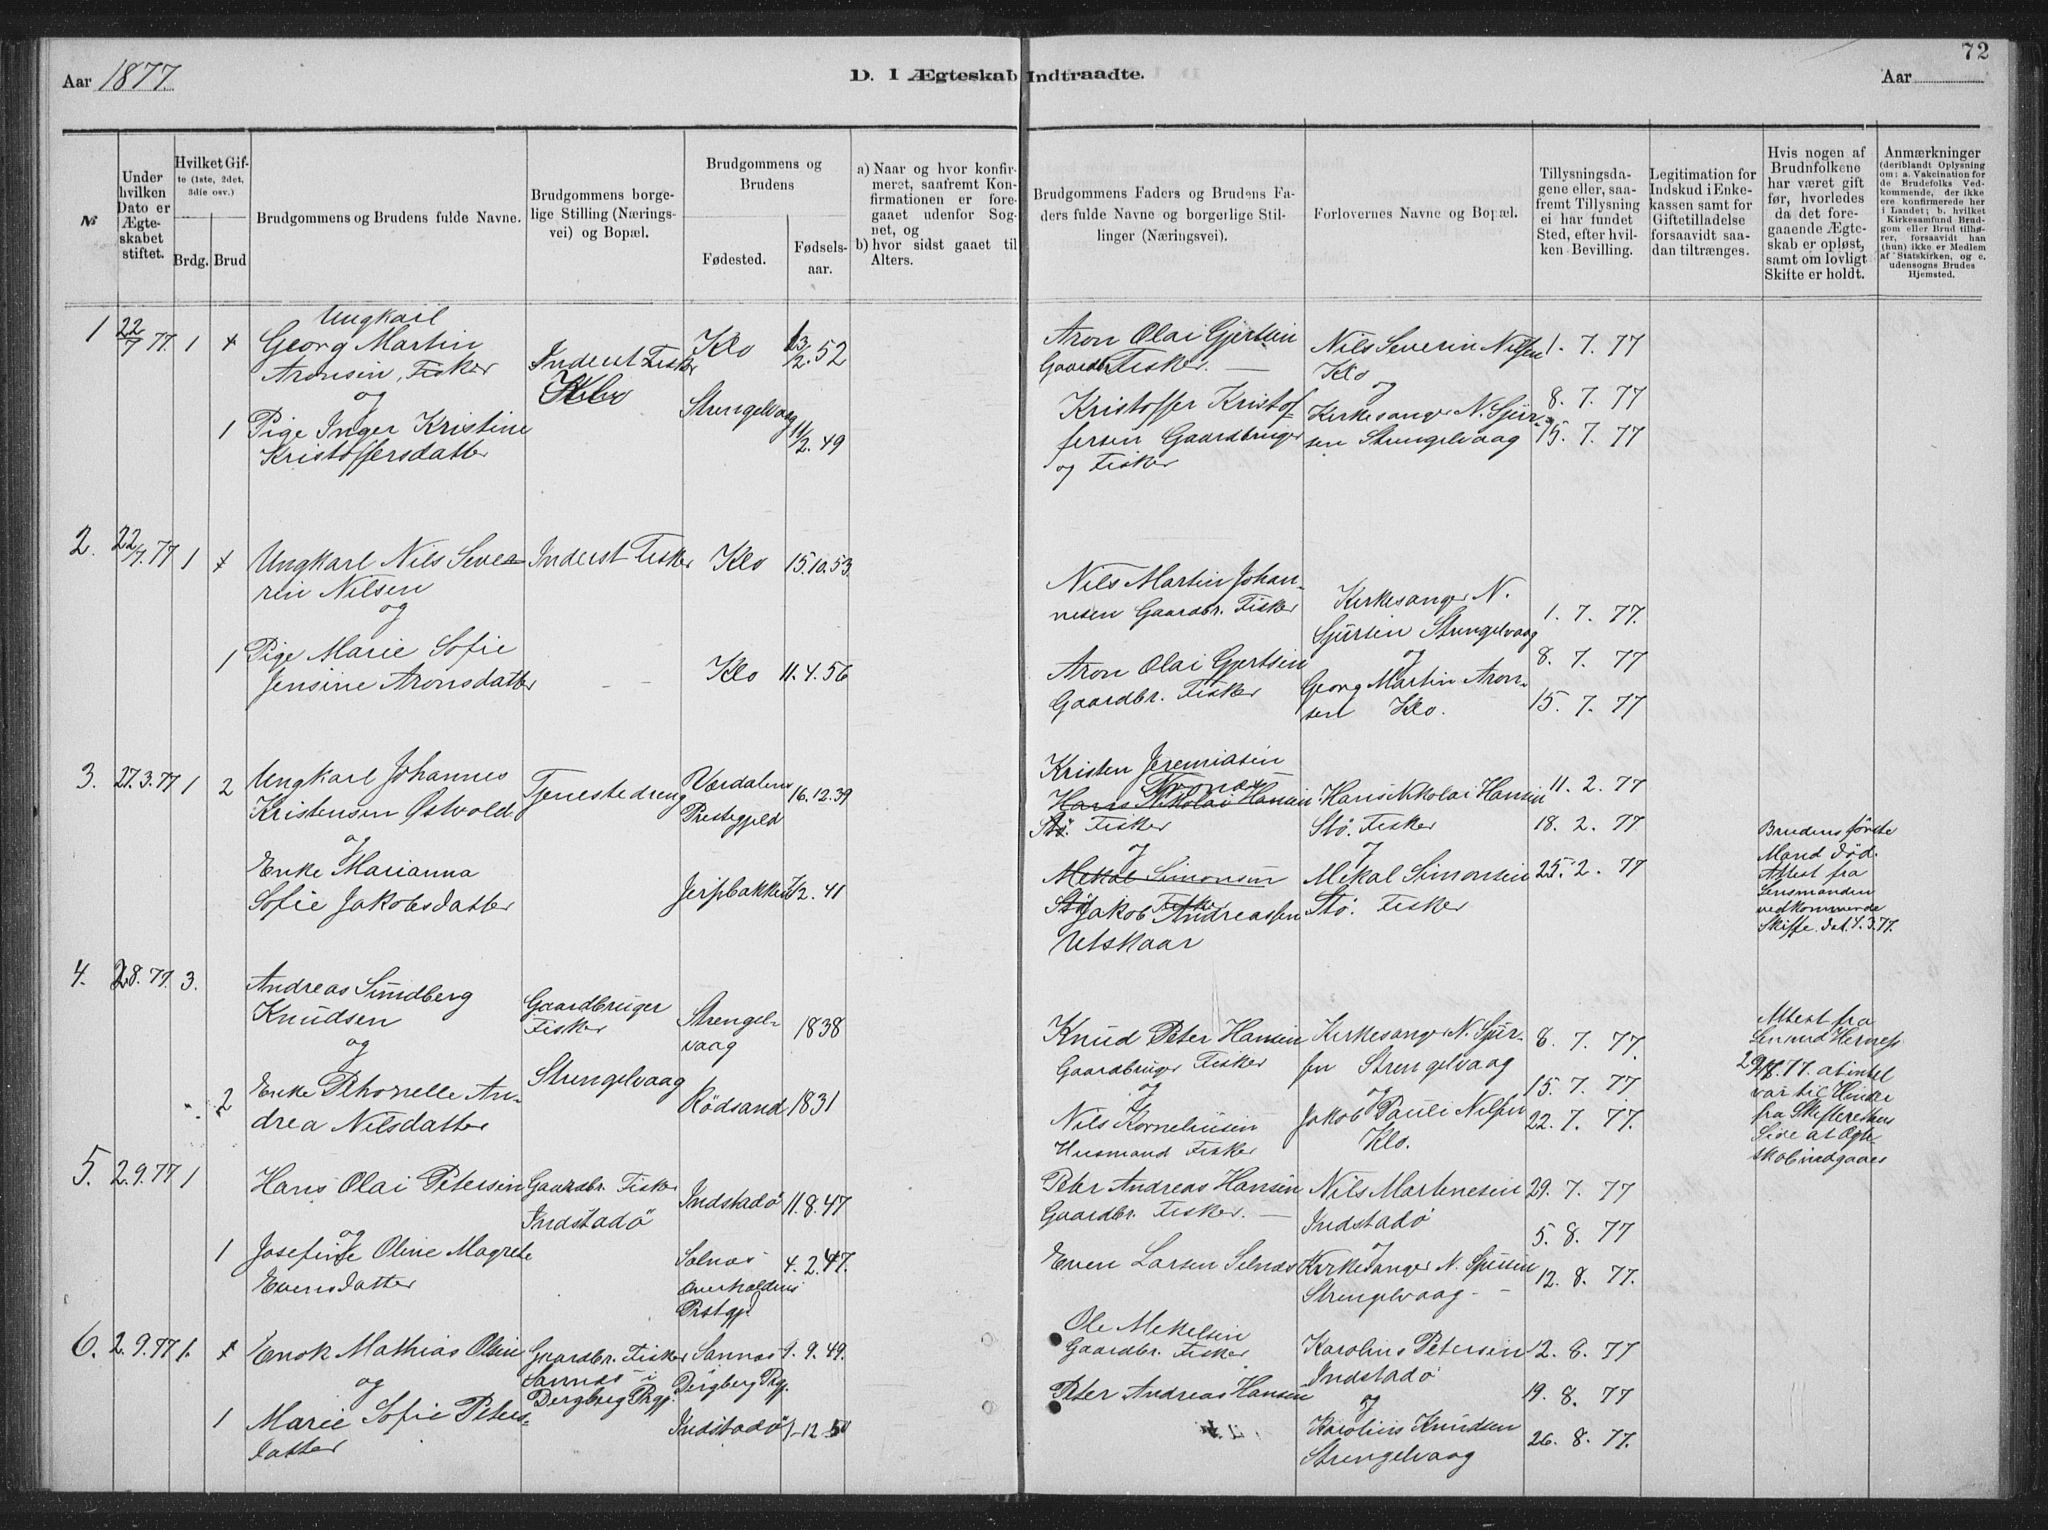 72
Aar 1877.
D. I Ægteskab Indtraadte.
Aar
№
Under hvilken Dato er Ægteskabet stiftet.
Hvilket Gifte (1ste, 2det, 3die osv.)
Brdg.
Brud
Brudgommens og Brudens fulde Navne.
Brudgommens borgelige Stilling (Næringsvei) og Bopæl.
Brudgommens og Brudens
Fødested.
Fødselsaar.
a) Naar og hvor konfirmeret, saafremt Konfirmationen er foregaaet udenfor Sognet, og
b) hvor sidst gaaet til Alters.
Brudgommens Faders og Brudens Faders fulde Navne og borgerlige Stillinger (Næringsvei).
Forlovernes Navne og Bopæl.
Tillysningsdagene eller, saafremt Tillysning ei har fundet Sted, efter hvilken Bevilling.
Legitimation for Indskud i Enkekassen samt for Giftetilladelse forsaavidt saadan tiltrænges.
Hvis nogen af Brudnfolkene har været gift før, hvorledes da det foregaaende Ægteskab er opløst, samt om lovligt Skifte er holdt.
Anmærkninger
(deriblandt Oplysning om: a. Vakcination for de Brudefolks Vedkommende, der ikke ere konfirmerede her i Landet; b. hvilket Kirkesamfund Brudgom eller Brud tilhører, forsaavidt han (hun) ikke er Medlem af Statskirken, og c. udensogns Brudes Hjemsted.
1 22/7 77 1
Ungkarl
Georg Martin
Aronsen, Fisker
og
1 Pige Inger Kristine
Kristoffersdatter
Inderst Fisker
Klo
Klo 13/2.52
Strengelvaag 11/2.49
Aron Olai Gjertsen
Gaardbr Fisker. —
Kristoffer Kristof-
fersen Gaardbruger
og Fisker
Nils Severin Nilsen
Klo
og
Kirkesanger N. Sjur-
sen Strengelvaag
1. 7. 77
8. 7. 77
15. 7. 77
2. 22/7. 77 1
Ungkarl Nils Seve-
rin Nilsen
og
1 Pige Marie Sofie
Jensine Aronsdatter
Inderst Fisker
Klo 15.10.53.
Klo 11.4.56
Nils Martin Johan-
nesen Gaardbr. Fisker
Aron Olai Gjertsen
Gaardbr. Fisker
Kirkesanger N.
Sjursen Strengelvaag
og
Georg Martin Aron-
sen Klo.
1. 7. 77.
8. 7. 77
15. 7. 77
3. 27.3.77 1 2
Ungkarl Johannes
Kristensen Østvold
og
Enke Marianna
Sofie Jakobsdatter
Tjenestedreng
Værdalens
Prestegjeld
16.12.39
Jerpbakken 7/2.41
Kristen Jeremiasen
Tronæs
Hans Nikolai Hansen
Stø. Fisker
og
Mekal Simonsen
Stø Fisker
Jakob Andreassen
Utskaar
Hans Nikolai Hansen
Stø. Fisker
og
Mekal Simonsen
Stø. Fisker
11. 2. 77
18. 2. 77
25. 2. 77
Brudens første
Mand død.
Attest fra
Lensmanden
vedkommende
Skifte dat. 4.3.77.
4. 28.77. 3.
Andreas Sundberg
Knudsen
og
2 Enke Pthonelle An-
drea Nilsdatter
Gaardbruger
Fisker
Strengelvaag
Strengel-
vaag
1838
Rödsand 1831
Knud Peter Hansen
Gaardbruger Fisker
og
Nils Korneliusen
Husmand Fisker
Kirkesanger N. Sjur-
sen Strengelvaag
og
Jakob Pauli Nilsen
Klo.
8. 7. 77.
15. 7. 77.
22. 7. 77.
Attest fra
Lensmd Herness
77. at intet
var til Hinder
fra Skifterettens
Side at Ægte-
skab indgaaes
5. 2.9.77 1
Hans Olai Petersen
og
1 Josefine Oline Magrete
Evensdatter
Gaardbr. Fisker
Indstadø
Indstadø 11.8.47
Selnæs
Overhaldens
Prstgj.
4.2.47.
Peter Andreas Hansen
Gaardbr. Fisker. —
Even Larsen Selnæs
Nils Martenesen
Indstadø
og
Kirkesanger N. Sjursen
Strengelvaag. —
29. 7. 77
5. 8. 77
12. 8. 77.
6. 2.9.77 1.
Enok Mathias Olsen
og
1 Marie Sofie Peters-
datter
Gaardbr. Fisker
Sannæs i
Dergberg Prgj.
Sannæs
Dergberg Prgj.
9.9.49.
Indstadø 1-12-50
Ole Mekelsen
Gaardbr. Fisker
Peter Andreas Hansen
Karolius Petersen
Indstadø
og
Karolius Knudsen
Strengelvaag
12. 8. 77
19. 8. 77
26. 8. 77.